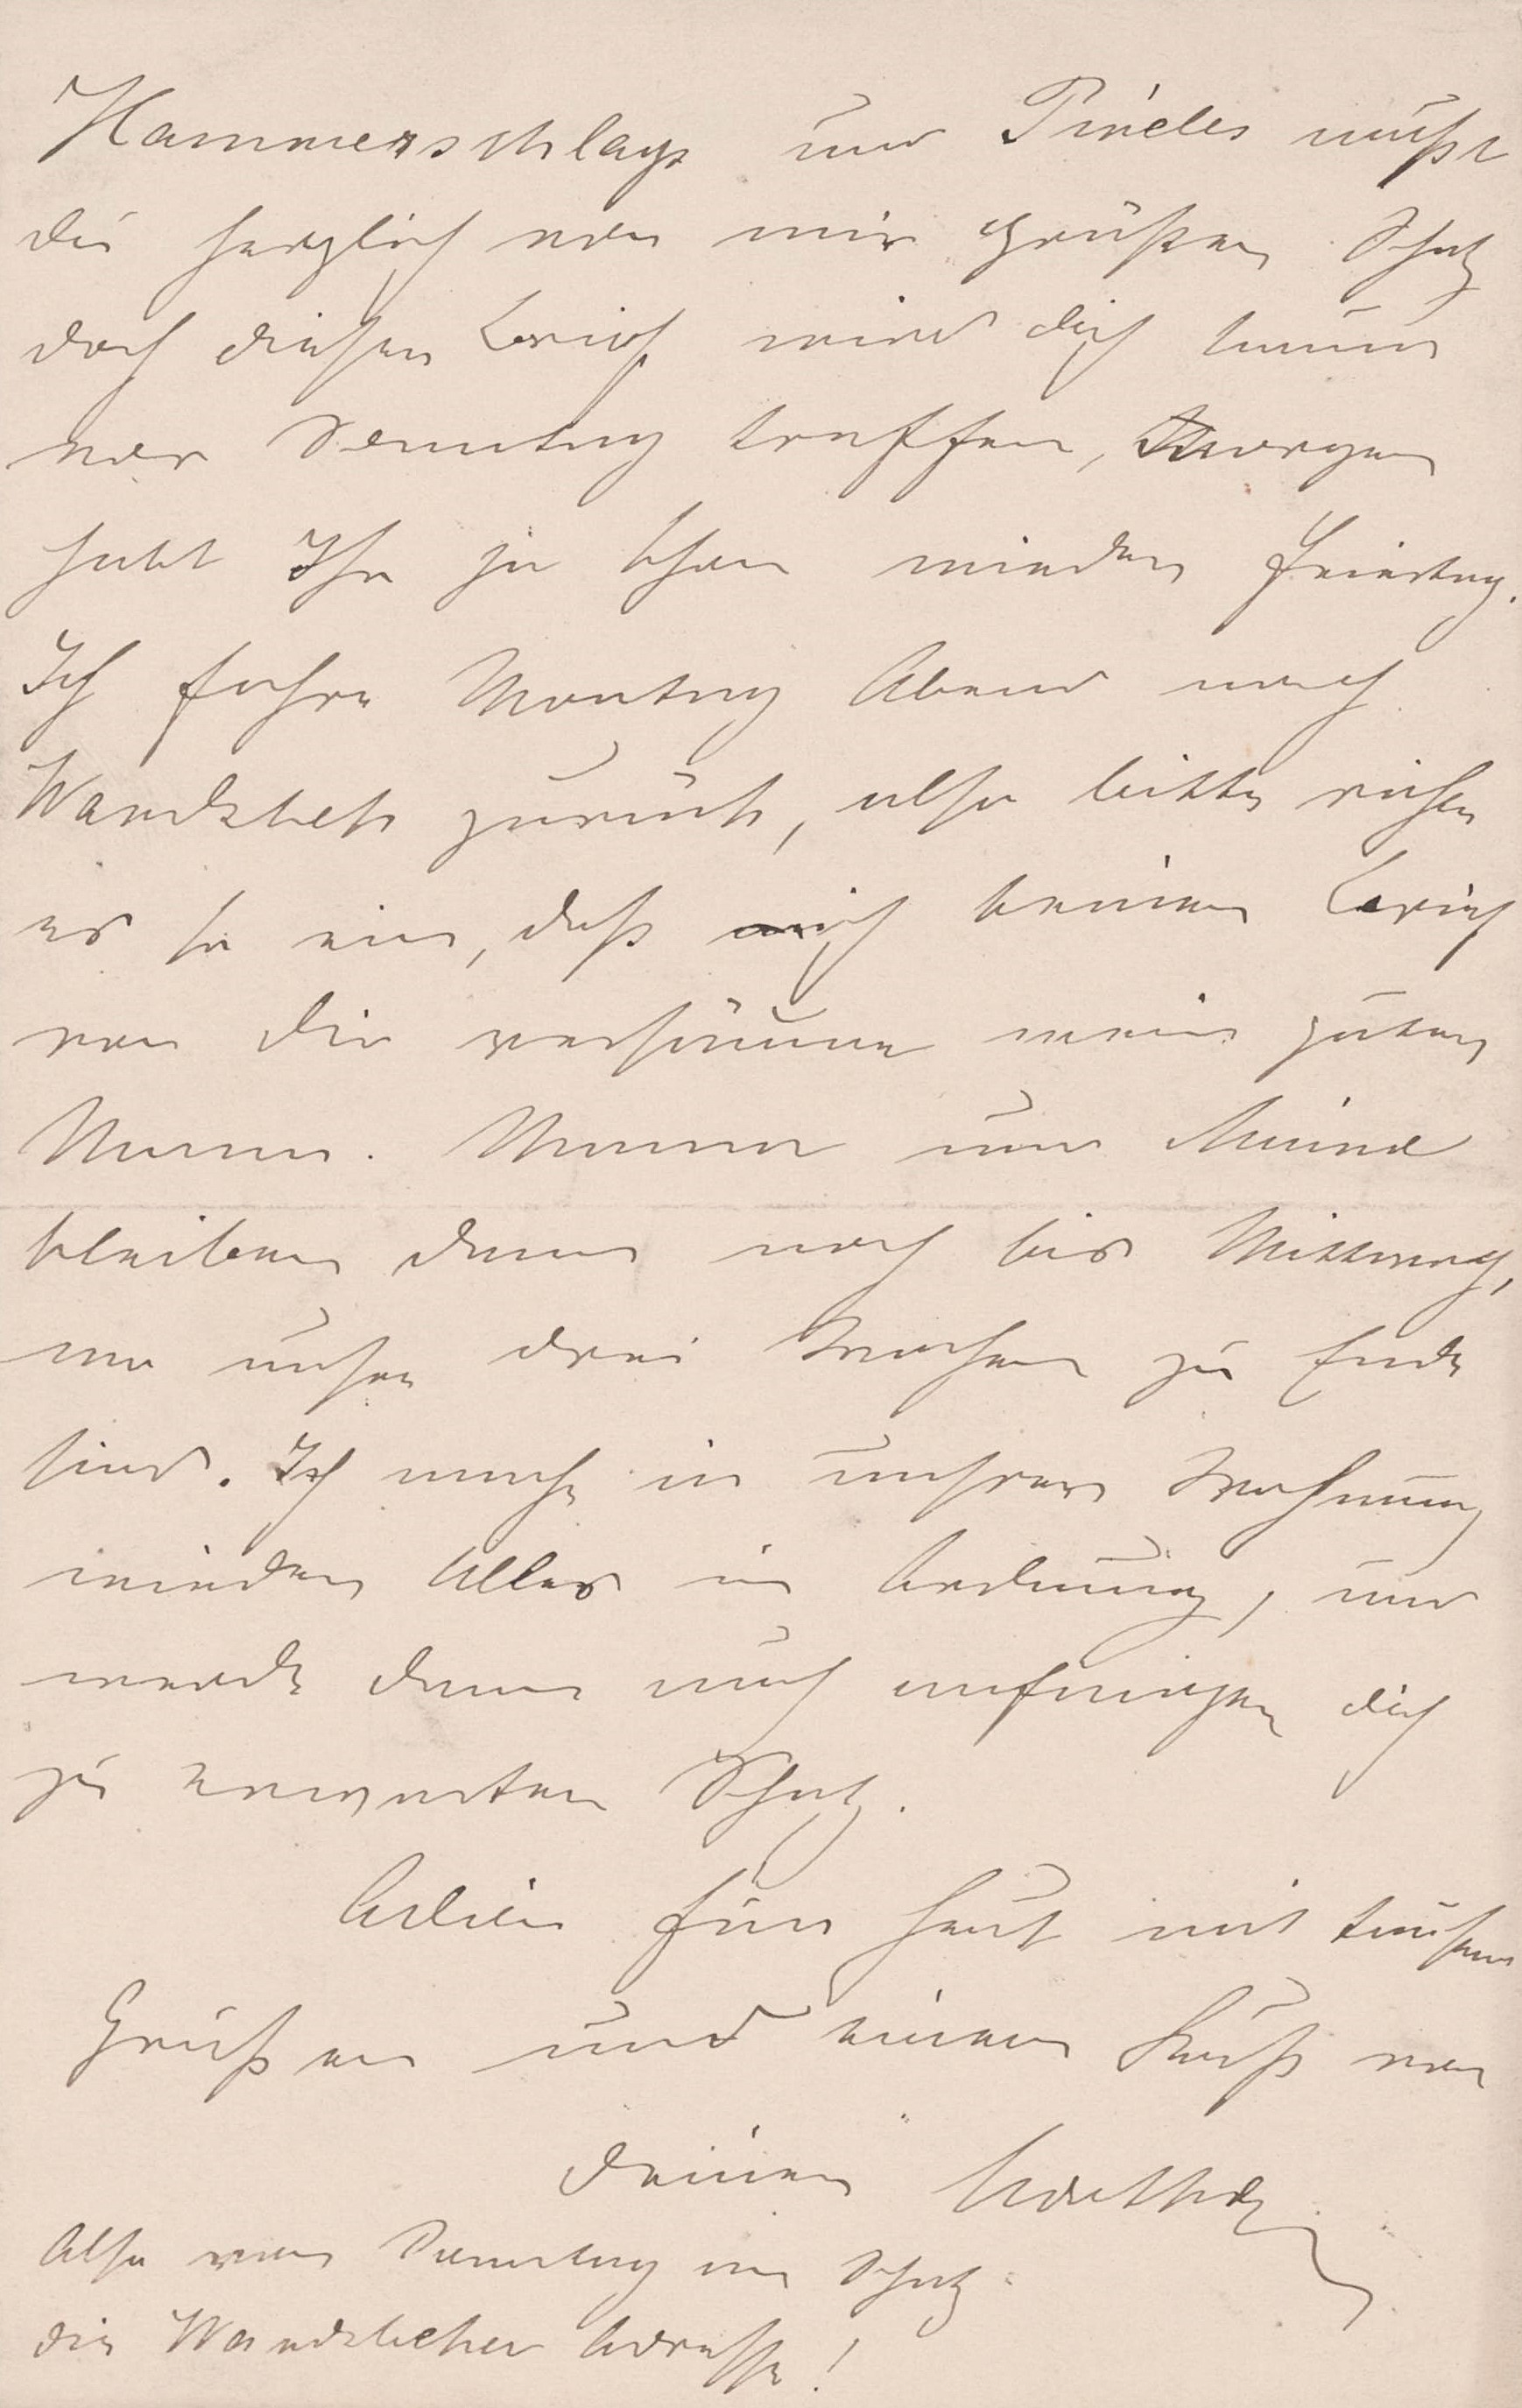 Hammerschlags und Pineles mußt
du herzlich von mir grüßen Schatz
doch diesen Brief wird dich kaum
vor Sonntag treffen, Morgen
habt Ihr ja schon wieder Feiertag.
Ich fahre Montag Abend nach
Wandsbek zurück, also bitte richte
es so ein, daß ich keinen Brief
von dir versäume mein guter
Mann. Mama und Minna
bleiben dann noch bis Mittwoch,
wo unsre drei Wochen zu Ende
sind. Ich mache in unsrer Wohnung
wieder Alles in Ordnung, und
werde dann auch anfangen dich
zu erwarten Schatz.
Adieu für heut mit tausend
Grüßen und einem Kuß von
deiner Martha
Also von Sonntag an Schatz
die Wandsbeker Adresse!